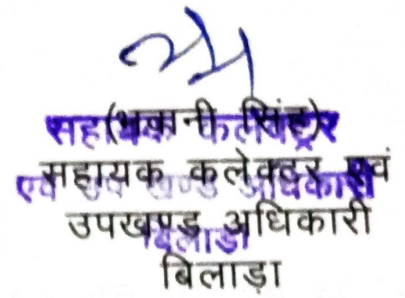 (भवानी सिंह)
सहायक कलेक्टर एवं
उपखण्ड अधिकारी
बिलाड़ा
सहायक कलेक्टर
एवं उप खण्ड अधिकारी
बिलाड़ा